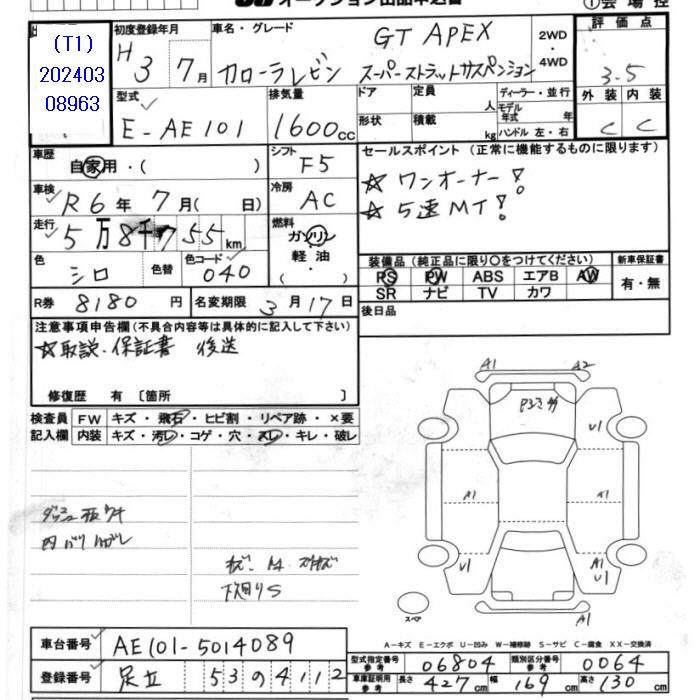 オークション出品申込書 ①会場控
(T1)
202403
08963
初度登録年月 車名・グレード 2WD・4WD 評価点
H 3 7月 カローラレビン GT APEX スーパーストラットサスペンション 3.5
型式 排気量 ドア 定員 人 ディーラー・並行 外装 内装
E-AE101 1600cc 形状 積載 kg モデル年式 年 ハンドル 左・右 C C
車歴 シフト セールスポイント (正常に機能するものに限ります)
自家用・( ) F5
☆ ワンオーナー!
車検 冷房
R6年 7月( 日) AC
☆ 5速MT!
走行 燃料
5万8千755km ガソリン・軽油・( )
色 色替 色コード 装備品(純正品に限り○をつけてください) 新車保証書
シロ 040 PS PW ABS エアB AW 有・無
SR ナビ TV カワ
R券 8180円 名変期限 3月17日 後日品
注意事項申告欄(不具合内容等は具体的に記入して下さい)
☆取説・保証書 後送
修復歴 有 〔箇所 〕
検査員 FW キズ・飛石・ヒビ割・リペア跡・×要
記入欄 内装 キズ・汚レ・コゲ・穴・スレ・キレ・破レ
下廻りS
A1 A2
U1
A1 A1
U1 A1 U1
スペア A1
A-キズ E-エクボ U-凹み W-補修跡 S-サビ C-腐食 XX-交換済
車台番号 AE101-5014089
型式指定番号 参考 06804 類別区分番号 参考 0064
登録番号 足立 53 の 4112
車庫証明用 参考 長さ 427cm 幅 169cm 高さ 130cm